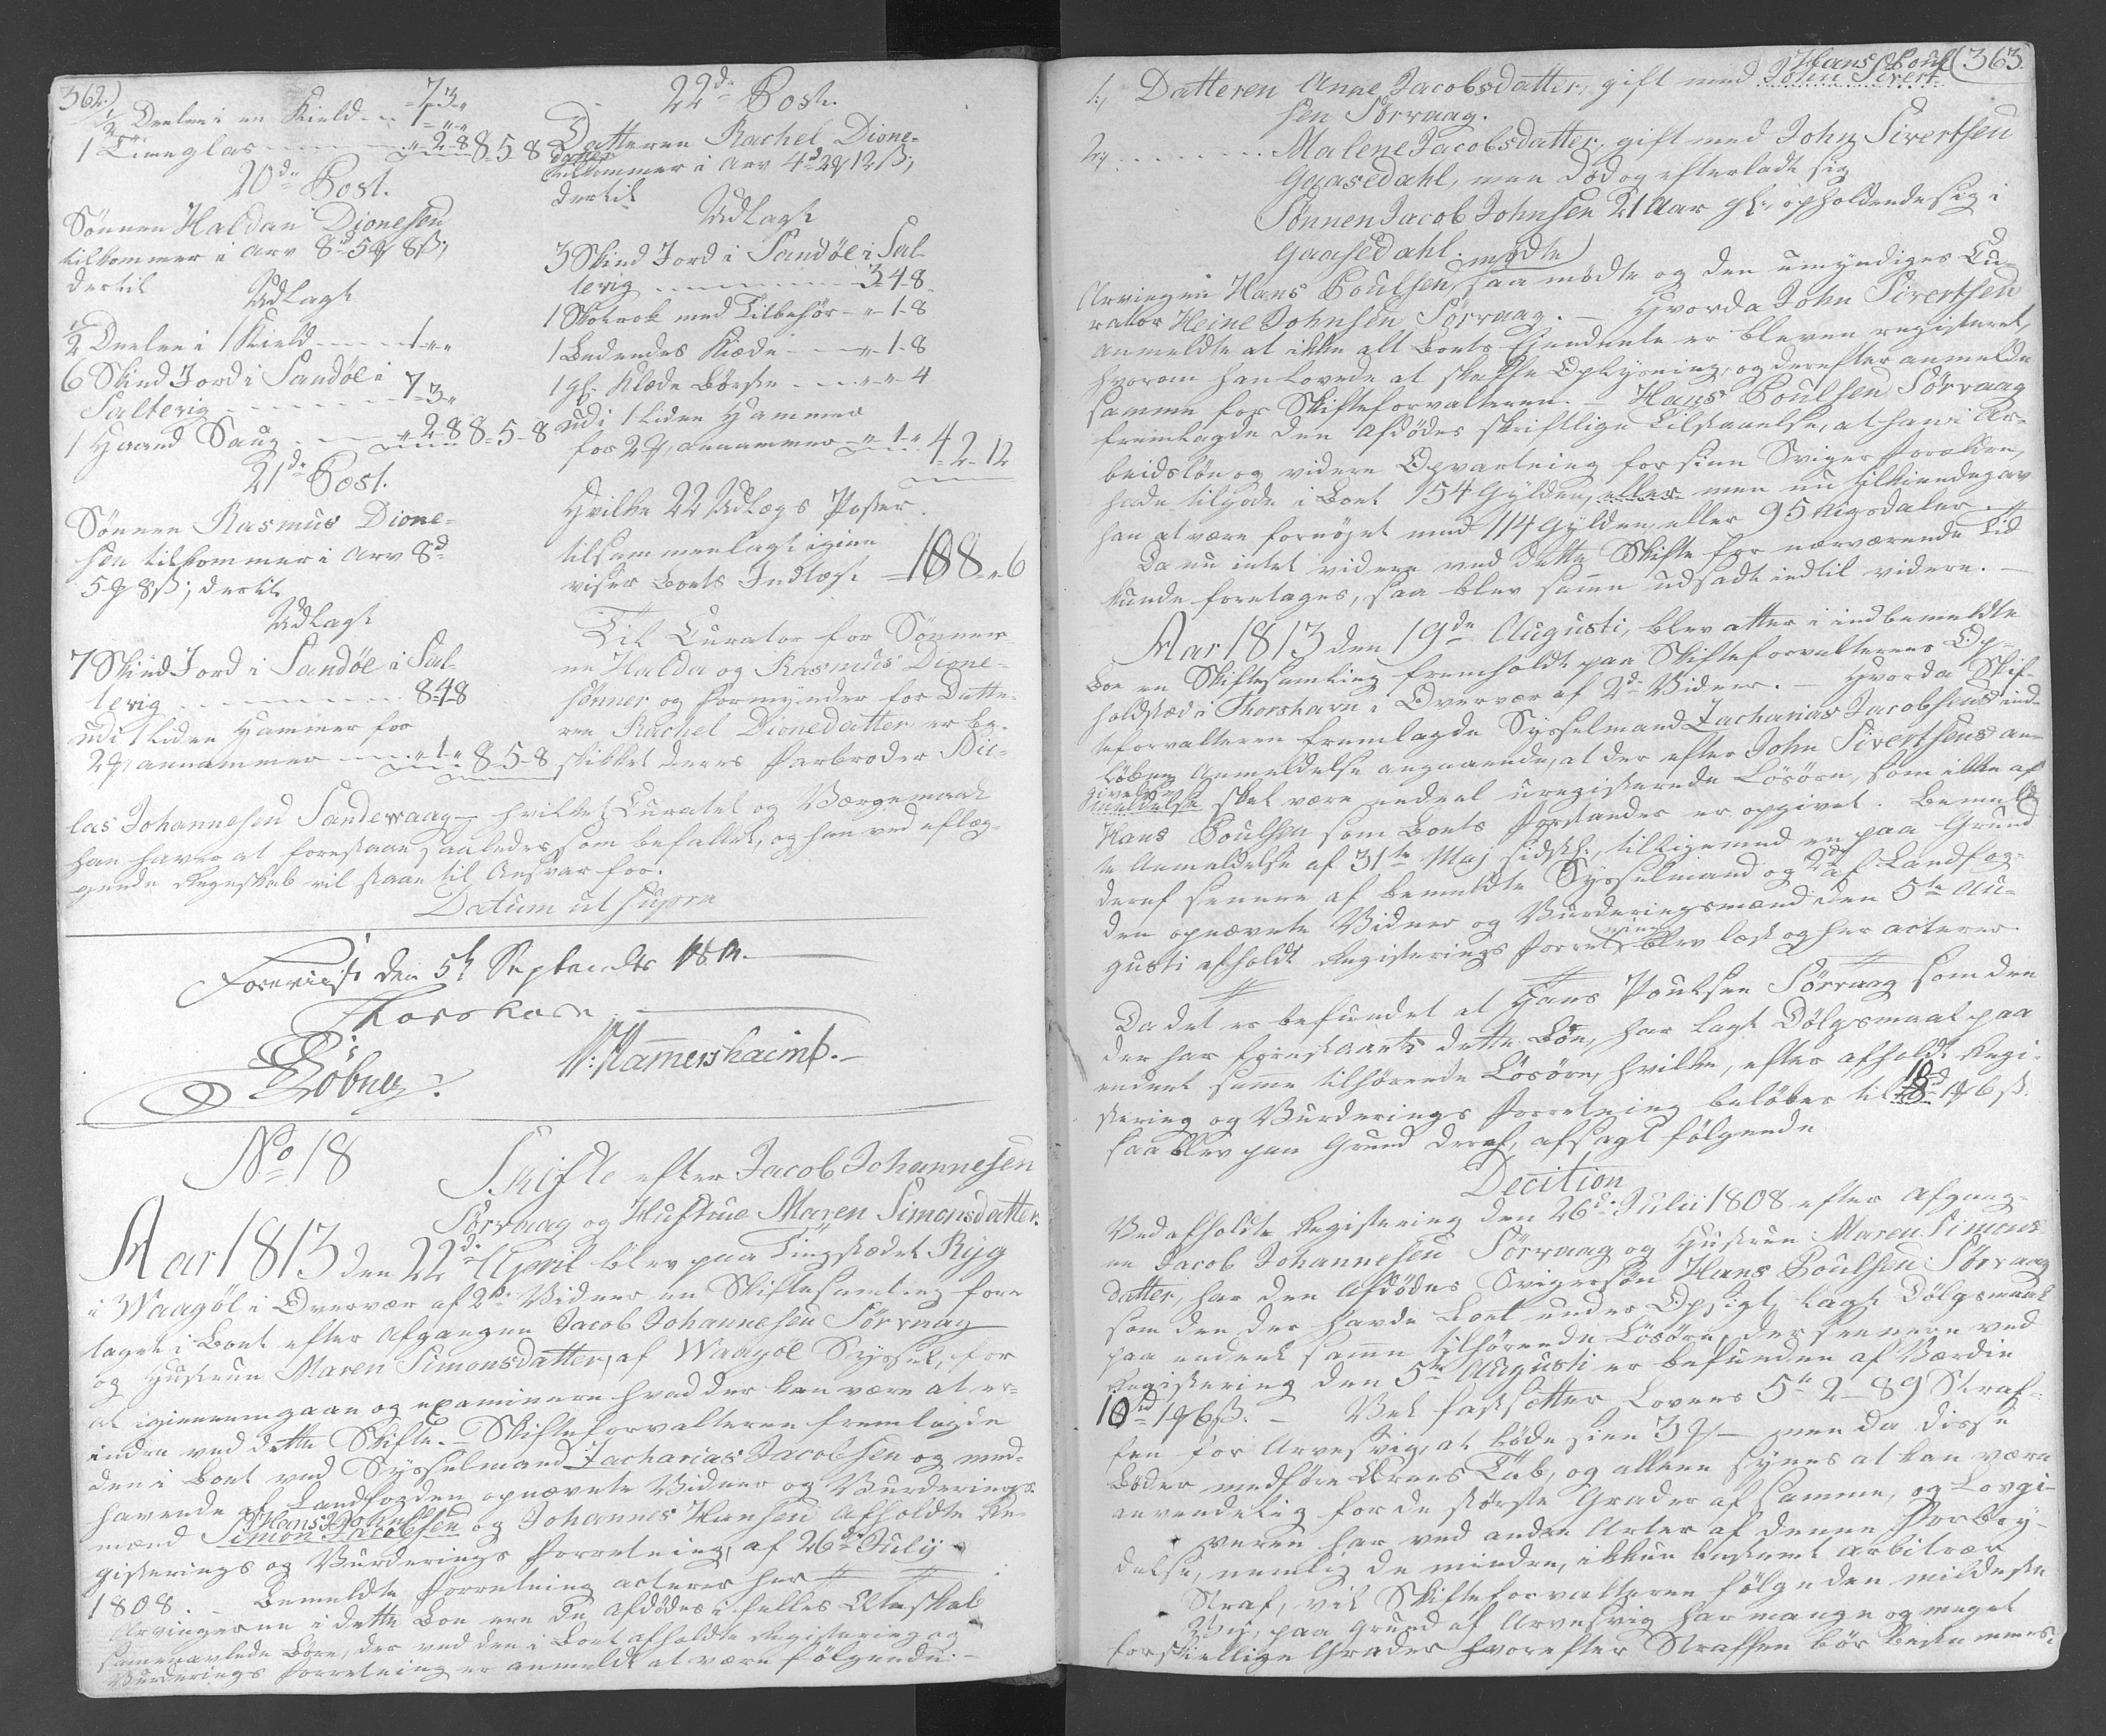 362.)
½ Deelen i en Kield - - 7 3 „
1 Timeglas - - - „ 2 8 8 - 5 - 8
20de Post.
Sönnen Haldan Dionesen
tilkommer i Arv 8d 5q 8ß;
dertil
Udlagt
½ Deelen i 1 Kield - - - 1 „ „
6 Skind Jord i Sandöe i
Salterig - - - 7 - 3 „
1 Haand Saug - - „ 2 8 8 - 5 - 8
21de Post.
Sönnen Rasmus Dione-
sen tilkommer i Arv 8d
5q 8ß; dertil
Udlagt
7 Skind Jord i Sandöe i Sal-
terig - - - 8 4 8
udi 1 liden Hammer for
2q, annammer - - „ 1 „ 8 - 5 - 8
22de Post.
Datteren Rachel Dione-
datter
tilkommer i Arv 4d 2q 12ß;
dertil
Udlagt
3 Skind Jord i Sandöe i Sal-
terig - - - 3 4 8
1 Skokrok med Tilbehör - „ 1 - 8
1 Kiæde - - „ 1 - 8
1 gl. Klæde Börste - - „ „ 4
udi 1 liden Hammer
for 2q, annammer - „ 1 „ 4 - 2 - 12
Hvilke 22 Udlægs Poster
tilsammenlagt igien
viser Boets Indtægt - 188 „ 6
Til Curator for Sönner-
ne Halda og Rasmus Dione-
sönner og Formynder for Datte-
ren Rachel Dionedatter er be-
skikket deres Farbroder Nic-
las Johannesen Sandevaag, hvilket Curatel og Værgemaal
han haver at forestaae, saaledes som befalet, og han ved aflæg-
gende Regnskab vil staae til Ansvar for.
Datum ut supra
Foreviist den 5te September 1814.
Thorshavn
Löbner.
W. Hammershaimb.
No 18
Skifte efter Jacob Johannesen
Sörvaag og Hustrue Maren Simonsdatter.
Aar 1813 den 22de April blev paa Tingstædet Ryg
i Waagöe i Overvær af 2de Vidner en Skiftesamling fore
taget i Boet efter Afgangne Jacob Johannesen Sörvaag
og Hustrue Maren Simonsdatter, af Waagöe Syssel, for
at igiennemgaae og examinere hvad der kan være at er-
indre ved dette Skifte. - Skifteforvalteren fremlagde
den i Boet ved Sysselmand Zacharias Jacobsen og med-
havende af Landfogden opnævnte Vidner og Vurderings-
mænd Simon Jacobsen og Johannes Hansen afholdte Re-
gisterings og Vurderings Forretning, af 26de Julij
1808. - Bemeldte Forretning acteres her
Arvingerne i dette Boe ere de Afdödes i felles Ægteskab
sammenavlede Börn, der ved den i Boet afholdte Registering og
Vurderings Forretning er anmeldt at være følgende: -
363.
1., Datteren Anne Jacobsdatter, gift med Hans Poul
John Sivert
sen Sörvaag.
2., - - - Malene Jacobsdatter, gift med John Sivertsen
Gaasedahl, men död og efterladt sig
Sönnen Jacob Johnsen 21 Aar gl., opholdende sig i
Gaasedahl.
mödte
Arvingen Hans Poulsen, saa mödte og den umyndiges Cu-
rator Heine Johnsen Sörvaag. - Hvorda John Sivertsen
anmeldte at ikke alt Boets Ejendeele er bleven registeret,
hvorom han lovede at skaffe Oplysning, og derefter anmelde
samme for Skifteforvalteren. - Hans Poulsen Sörvaag
fremlagde den Afdödes skriftlige Tilstaaelse, at han i Ar-
beidslön og videre Opvartning for sine Sviger Forældre,
hade tilgode i Boet 154 Gylden, eller men nu tilkiendegav
han at være fornöjet med 114 Gylden eller 95 Rigsdaler.
Da nu intet videre ved dette Skifte for nærværende Tid
kunde foretages, saa blev samme udsadt indtil videre. -
Aar 1813 den 19de Augusti, blev atter i indbemeldte
Boe en Skiftesamling fremholdt paa Skifteforvalterens Op-
holdsted i Thorshavn i Overvær af 2de Vidner. - Hvorda Skif-
teforvalteren fremlagde Sysselmand Zacharias Jacobsens ind-
löbne Anmeldelse angaaende, at der efter John Sivertsens an-
givelse
meldelse skal være endeel uregisterede Lösöre, som ikke af
Hans Poulsen som Boets Forstander er opgivet. Bemeld-
te Anmeldelse af 31te Maj sidstl., tilligemed en paa Grund
deraf senere af bemeldte Sysselmand og 2de af Landfog-
den opnævnte Vidner og Vurderingsmænd den 5te Au-
gusti afholdt Registerings Forretning blev læst og her acteres.
Da det er befundet at Hans Poulsen Sörvaag som den
der har forestaaet dette Boe, har lagt Dölgsmaal paa
endeel samme tilhörende Lösöre, hvilke, efter afholdt Regi-
stering og Vurderings Forretning belöber til 10d 1q 6ß.
saa blev paa Grund deraf, afsagt fölgende
Decition
Ved afholdte Registering den 26de Julii 1808 efter Afgang-
ne Jacob Johannesen Sörvaag og Hustrue Maren Simons-
datter, har den Afdödes Svigersön Hans Poulsen Sörvaag
som den der havde Boet under Opsigt, lagt Dölgsmaal
paa endeel samme tilhörende Lösöre, der senere ved
Registering den 5te Augusti er befunden af Værdie
10d 1q 6ß. - Vel fastsætter Lovens 5te 2 - 89 Straf-
fen for Arvesvig, at böde sine 3 - men da disse
Böder medföre Ærens Tab, og allene synes at kan være
anvendelig for de störste Grader af samme, og Lovgi-
veren har ved andre Arter af denne Forbry-
delse, nemlig de mindre, ikkun bestemt arbitrær
Straf, vil Skifteforvalteren fölge den mildeste
Vej, paa Grund af Arvesvig har mange og meget
forskiellige Grader hvorefter Straffen bör bestemmes: